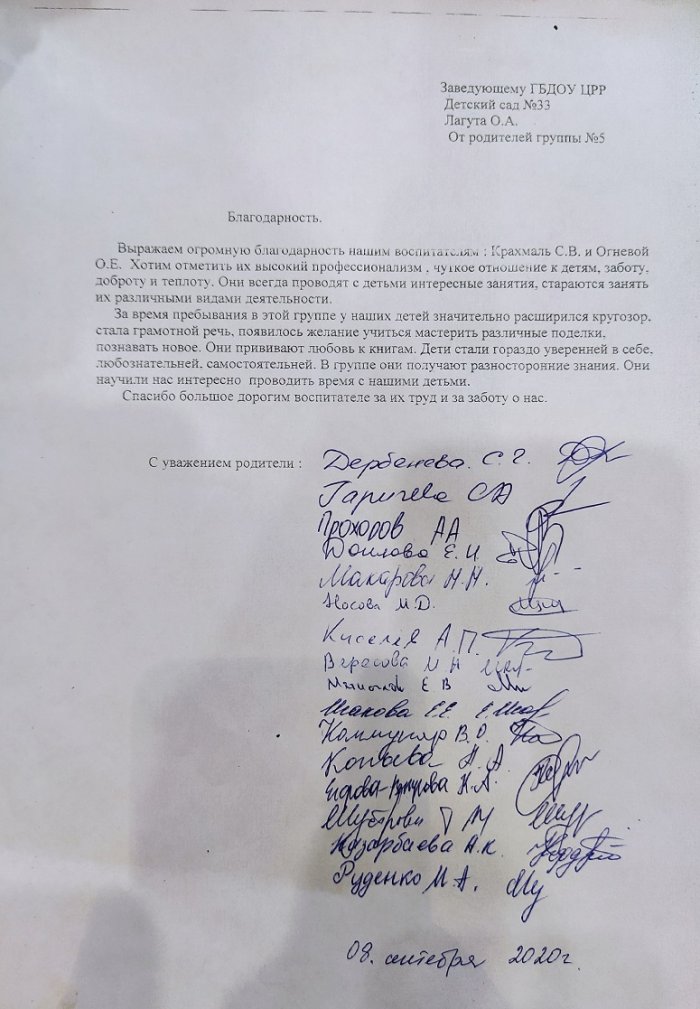 Заведующему ГБДОУ ЦРР
Детский сад №33
Лагута О.А.
От родителей группы №5
Благодарность.
Выражаем огромную благодарность нашим воспитателям : Крахмаль С.В. и Огневой
О.Е. Хотим отметить их высокий профессионализм , чуткое отношение к детям, заботу,
доброту и теплоту. Они всегда проводят с детьми интересные занятия, стараются занять
их различными видами деятельности.
За время пребывания в этой группе у наших детей значительно расширился кругозор,
стала грамотной речь, появилось желание учиться мастерить различные поделки,
познавать новое. Они прививают любовь к книгам. Дети стали гораздо уверенней в себе,
любознательней, самостоятельней. В группе они получают разносторонние знания. Они
научили нас интересно проводить время с нашими детьми.
Спасибо большое дорогим воспитателе за их труд и за заботу о нас.
С уважением родители : Дербенева. С. Г.
Гаричева СА
Прохоров АА
Макарова Н.Н.
Носова М.D.
А.П.
Вересова И Н
Е В
Шакова Е.Е.
Коммуняр В.О.
Копыева А. А.
Н.А.
Назарбаева А.К.
Руденко М.А.
08. сентября 2020г.